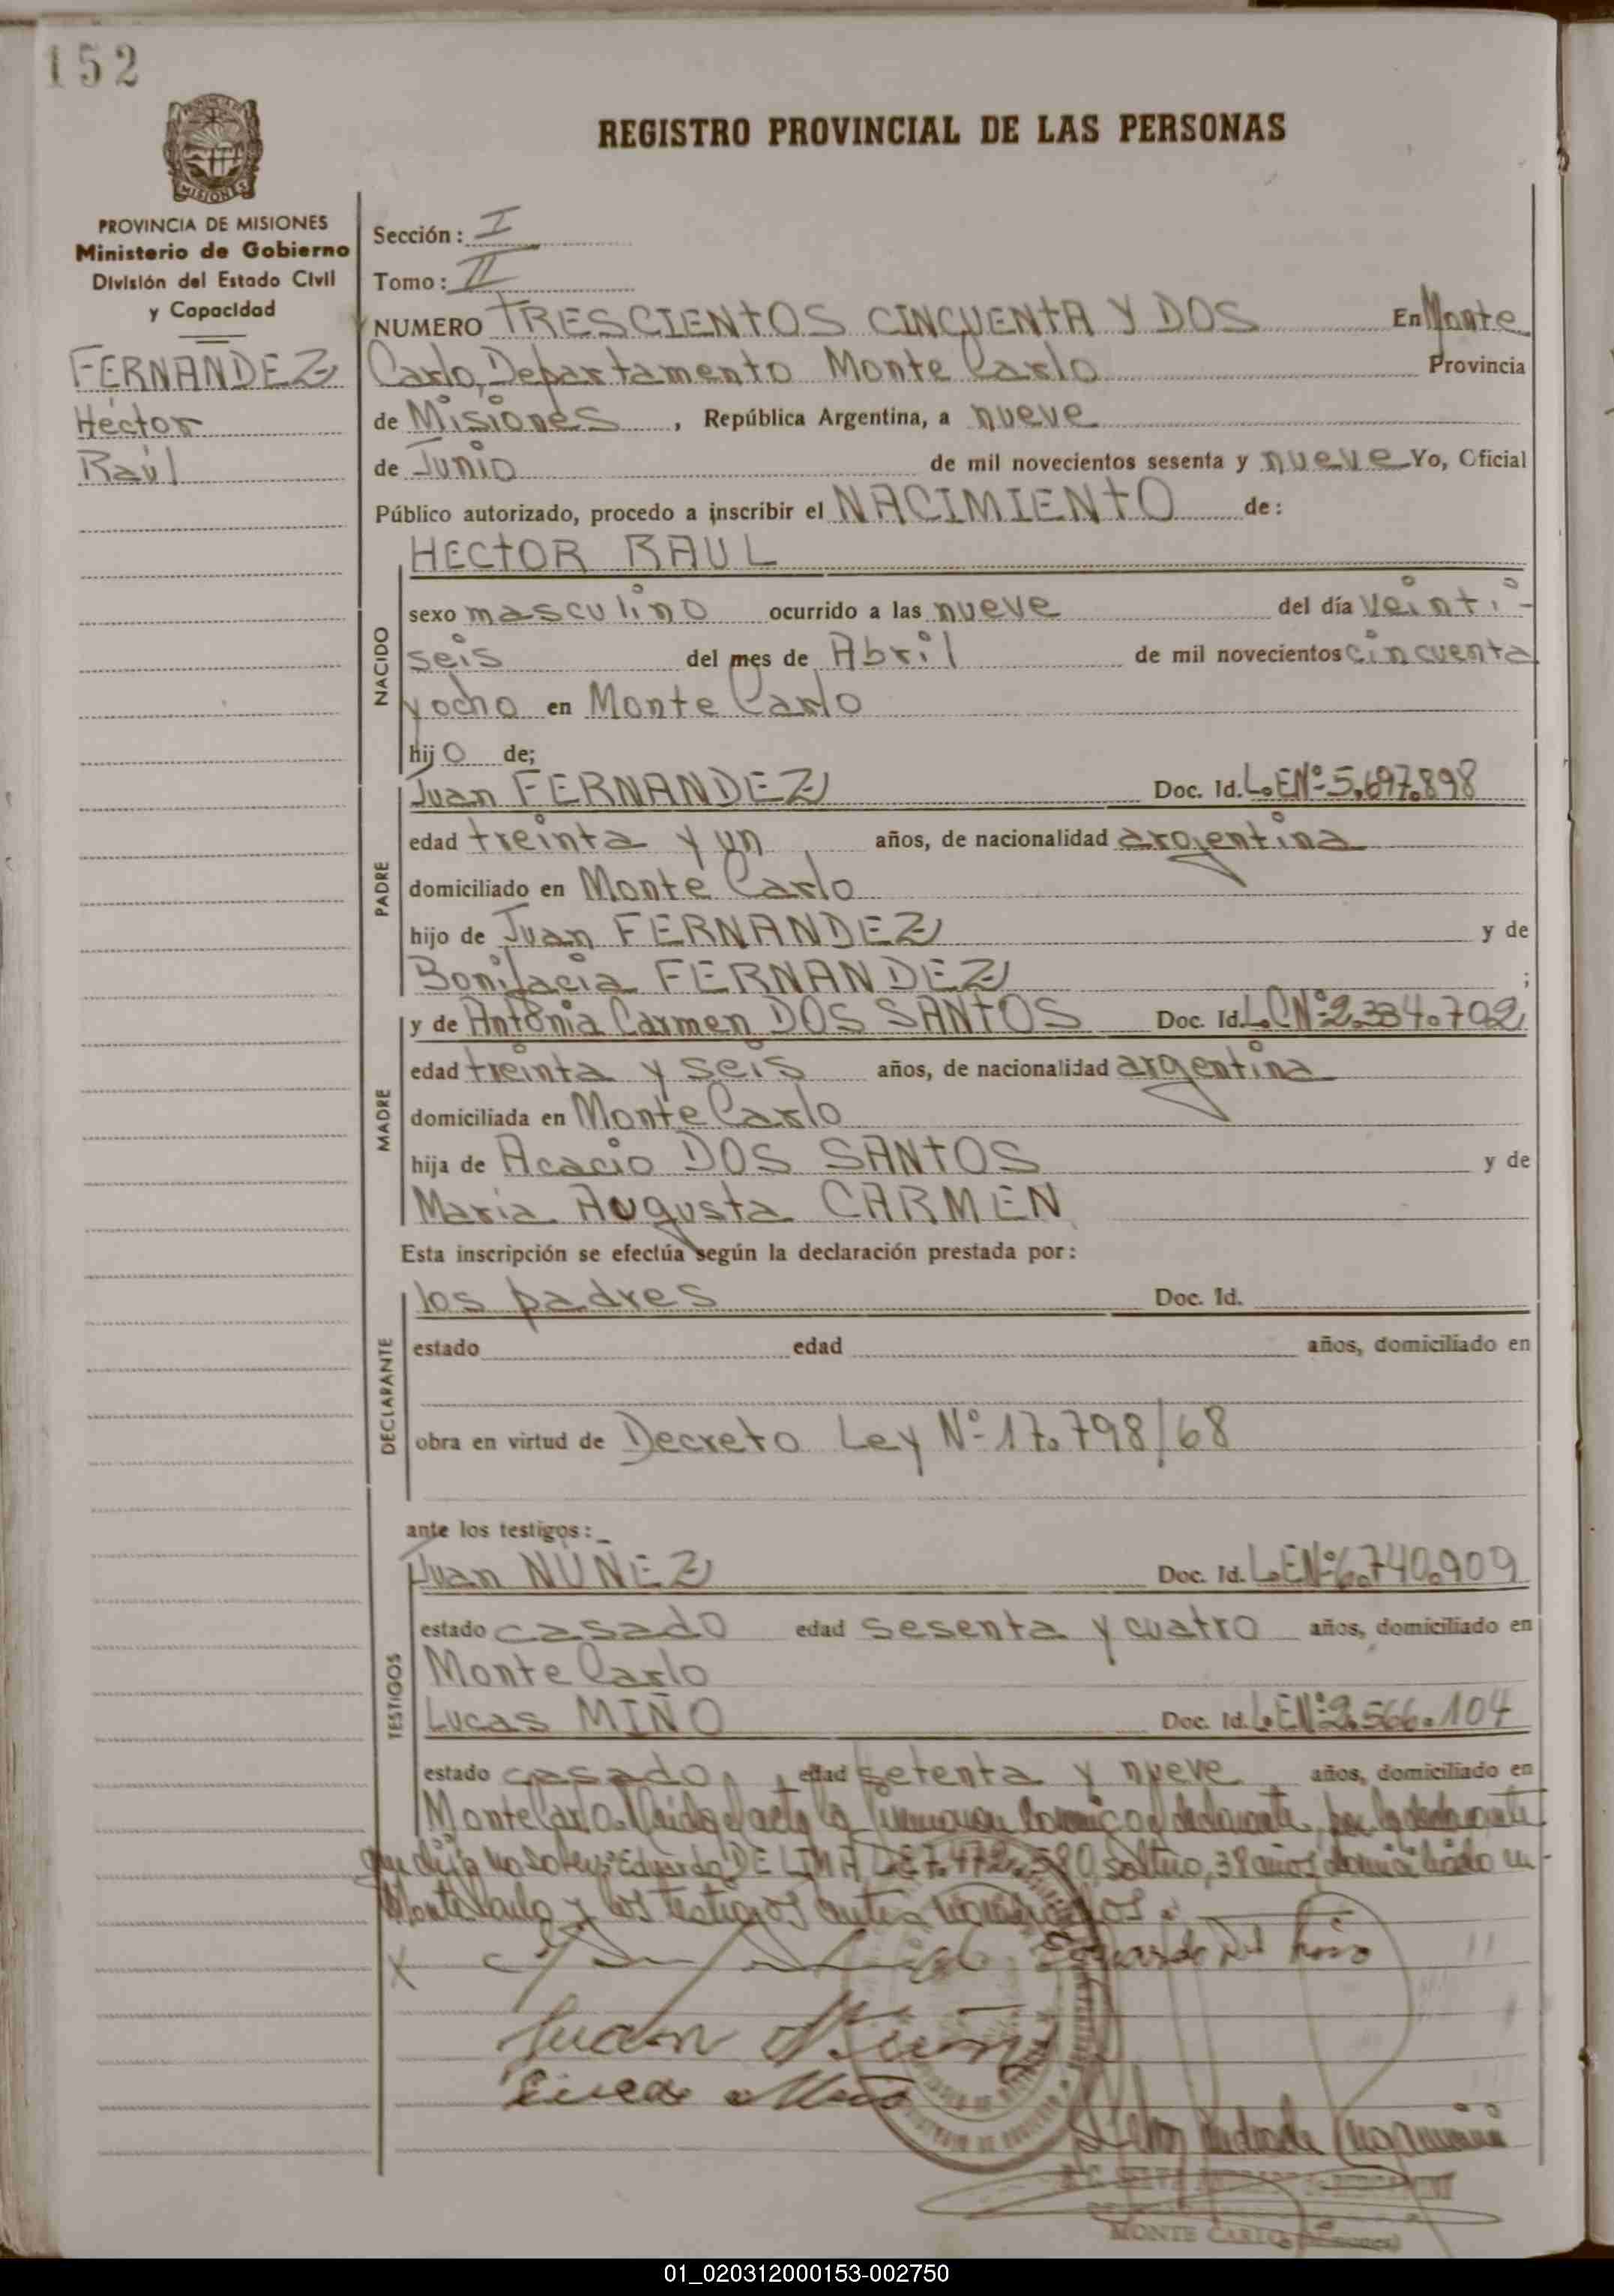 152
REGISTRO PROVINCIAL DE LAS PERSONAS
MISIONES
PROVINCIA DE MISIONES
Ministerio de Gobierno
División del Estado Civil
y Capacidad
FERNANDEZ
Héctor
Raúl
Sección: I
Tomo: II
NUMERO TRESCIENTOS CINCUENTA Y DOS En Monte
Carlo, Departamento Monte Carlo Provincia
de Misiones, República Argentina, a nueve
de Junio de mil novecientos sesenta y nueve Yo, Oficial
Público autorizado, procedo a inscribir el NACIMIENTO de:
HECTOR RAUL
NACIDO
sexo masculino ocurrido a las nueve del día veinti-
seis del mes de Abril de mil novecientos cincuenta
y ocho en Monte Carlo
hijo de;
PADRE
Juan FERNANDEZ Doc. Id. L.E Nº 5.697.898
edad treinta y un años, de nacionalidad argentina
domiciliado en Monte Carlo
hijo de Juan FERNANDEZ y de
Bonifacia FERNANDEZ ;
MADRE
y de Antonia Carmen DOS SANTOS Doc. Id. L.C Nº 2.334.702
edad treinta y seis años, de nacionalidad argentina
domiciliada en Monte Carlo
hija de Acacio DOS SANTOS y de
Maria Augusta CARMEN
Esta inscripción se efectúa según la declaración prestada por:
DECLARANTE
los padres Doc. Id.
estado edad años, domiciliado en
obra en virtud de Decreto Ley Nº 17.798/68
ante los testigos:
TESTIGOS
Juan NUÑEZ Doc. Id. L.E Nº 6.740.909
estado casado edad sesenta y cuatro años, domiciliado en
Monte Carlo
Lucas MIÑO Doc. Id. L.E Nº 2.566.104
estado casado, edad setenta y nueve años, domiciliado en
Monte Carlo. Leida el acta la firmaron conmigo el declarante, por la declarante
que dijo no saber: Eduardo DE LIMA L.E 7.472.580, soltero, 38 años domiciliado en
Monte Carlo y los testigos antes
Juan
MONTE CARLO (Misiones)
01_020312000153-002750